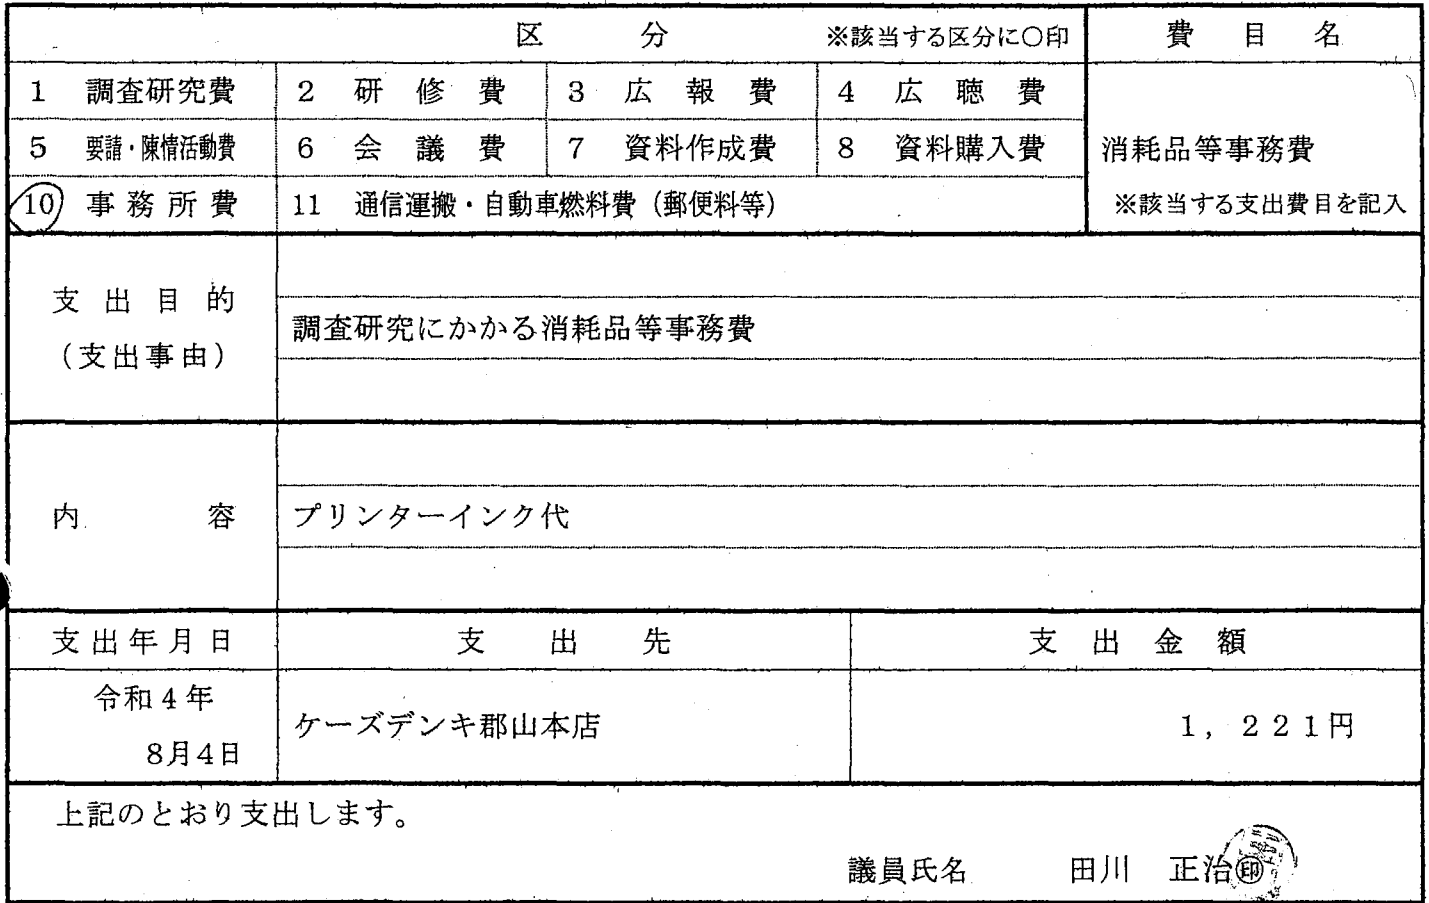 区 分 ※該当する区分に○印 費 目 名
1 調査研究費 2 研 修 費 3 広 報 費 4 広 聴 費
5 要請・陳情活動費 6 会 議 費 7 資料作成費 8 資料購入費 消耗品等事務費
10 事務所費 11 通信運搬・自動車燃料費（郵便料等） ※該当する支出費目を記入
支 出 目 的
（支出事由）
調査研究にかかる消耗品等事務費
内 容 プリンターインク代
支出年月日 支 出 先 支 出 金 額
令和４年
8月4日
ケーズデンキ郡山本店 １，２２１円
上記のとおり支出します。
議員氏名 田川 正治㊞